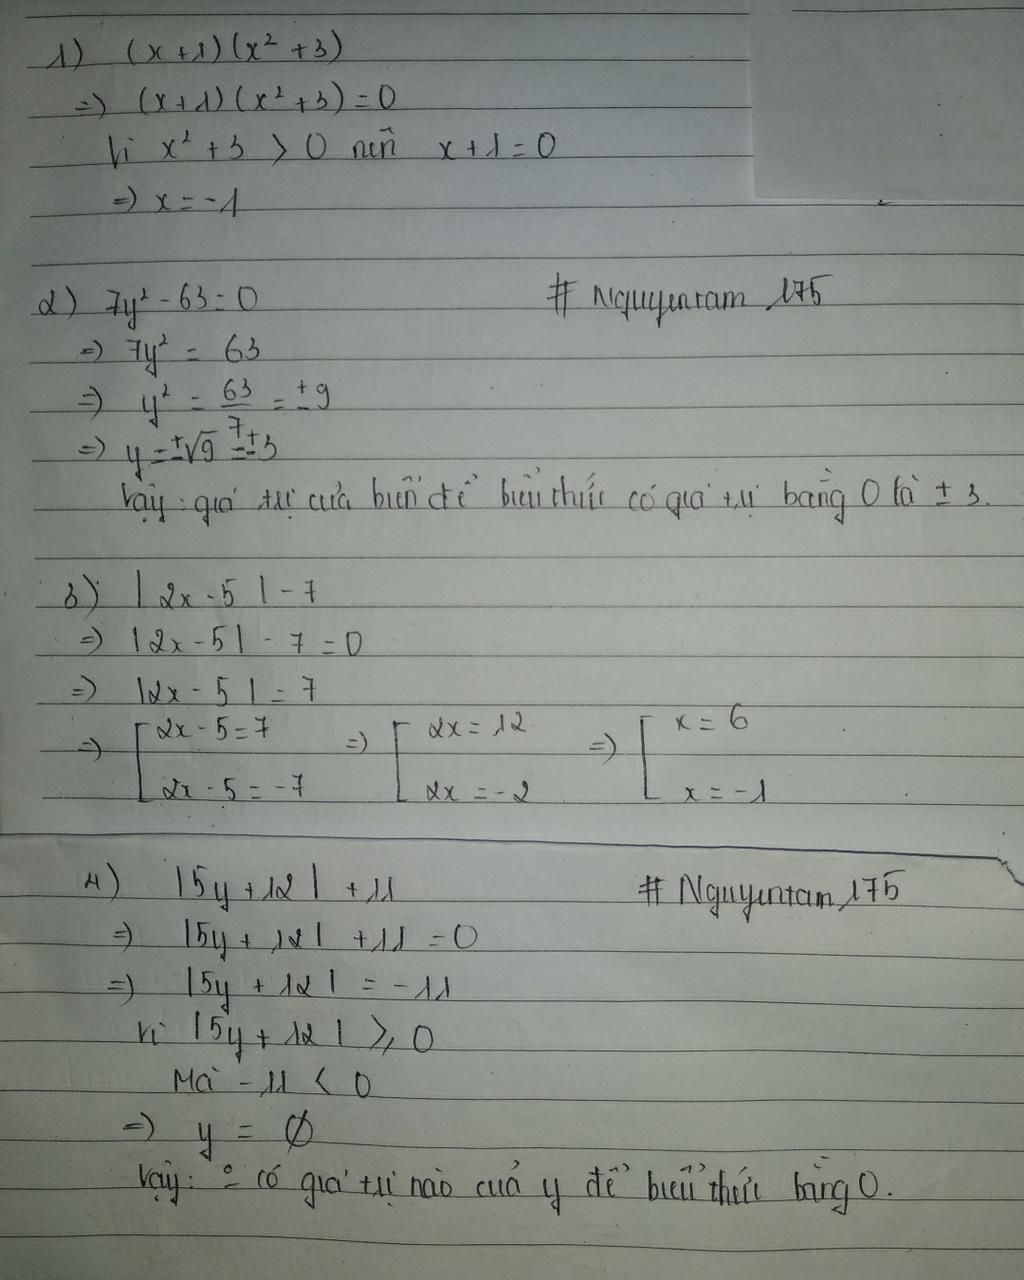 1) (x+1)(x² + 3)
=) (x+1)(x²+3)=0
Vì x² + 3 > 0 nên x+1=0
=) x = -1
2) 7y² - 63 = 0
# Nguyentam 175
=) 7y² = 63
=) y² = 63/7 = ±9
=) y = ±√9 = ±3
Vậy: giá trị của biến để biểu thức có giá trị bằng 0 là ± 3.
3) |2x - 5| - 7
=) |2x - 5| - 7 = 0
=) |2x - 5| = 7
=) [ 2x - 5 = 7 =) [ 2x = 12 =) [ x = 6
2x - 5 = -7 2x = -2 x = -1
4) |5y + 12| + 11
# Nguyentam 175
=) |5y + 12| + 11 = 0
=) |5y + 12| = -11
Vì |5y + 12| ⩾ 0
Mà -11 < 0
=) y = ∅
Vậy: có giá trị nào của y để biểu thức bằng 0.